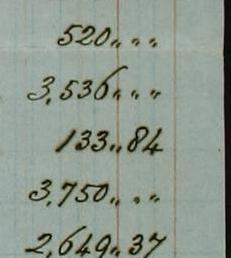 520 〃 〃
3,536 〃 〃
133 〃 84
3,750 〃 〃
2,649 〃 37